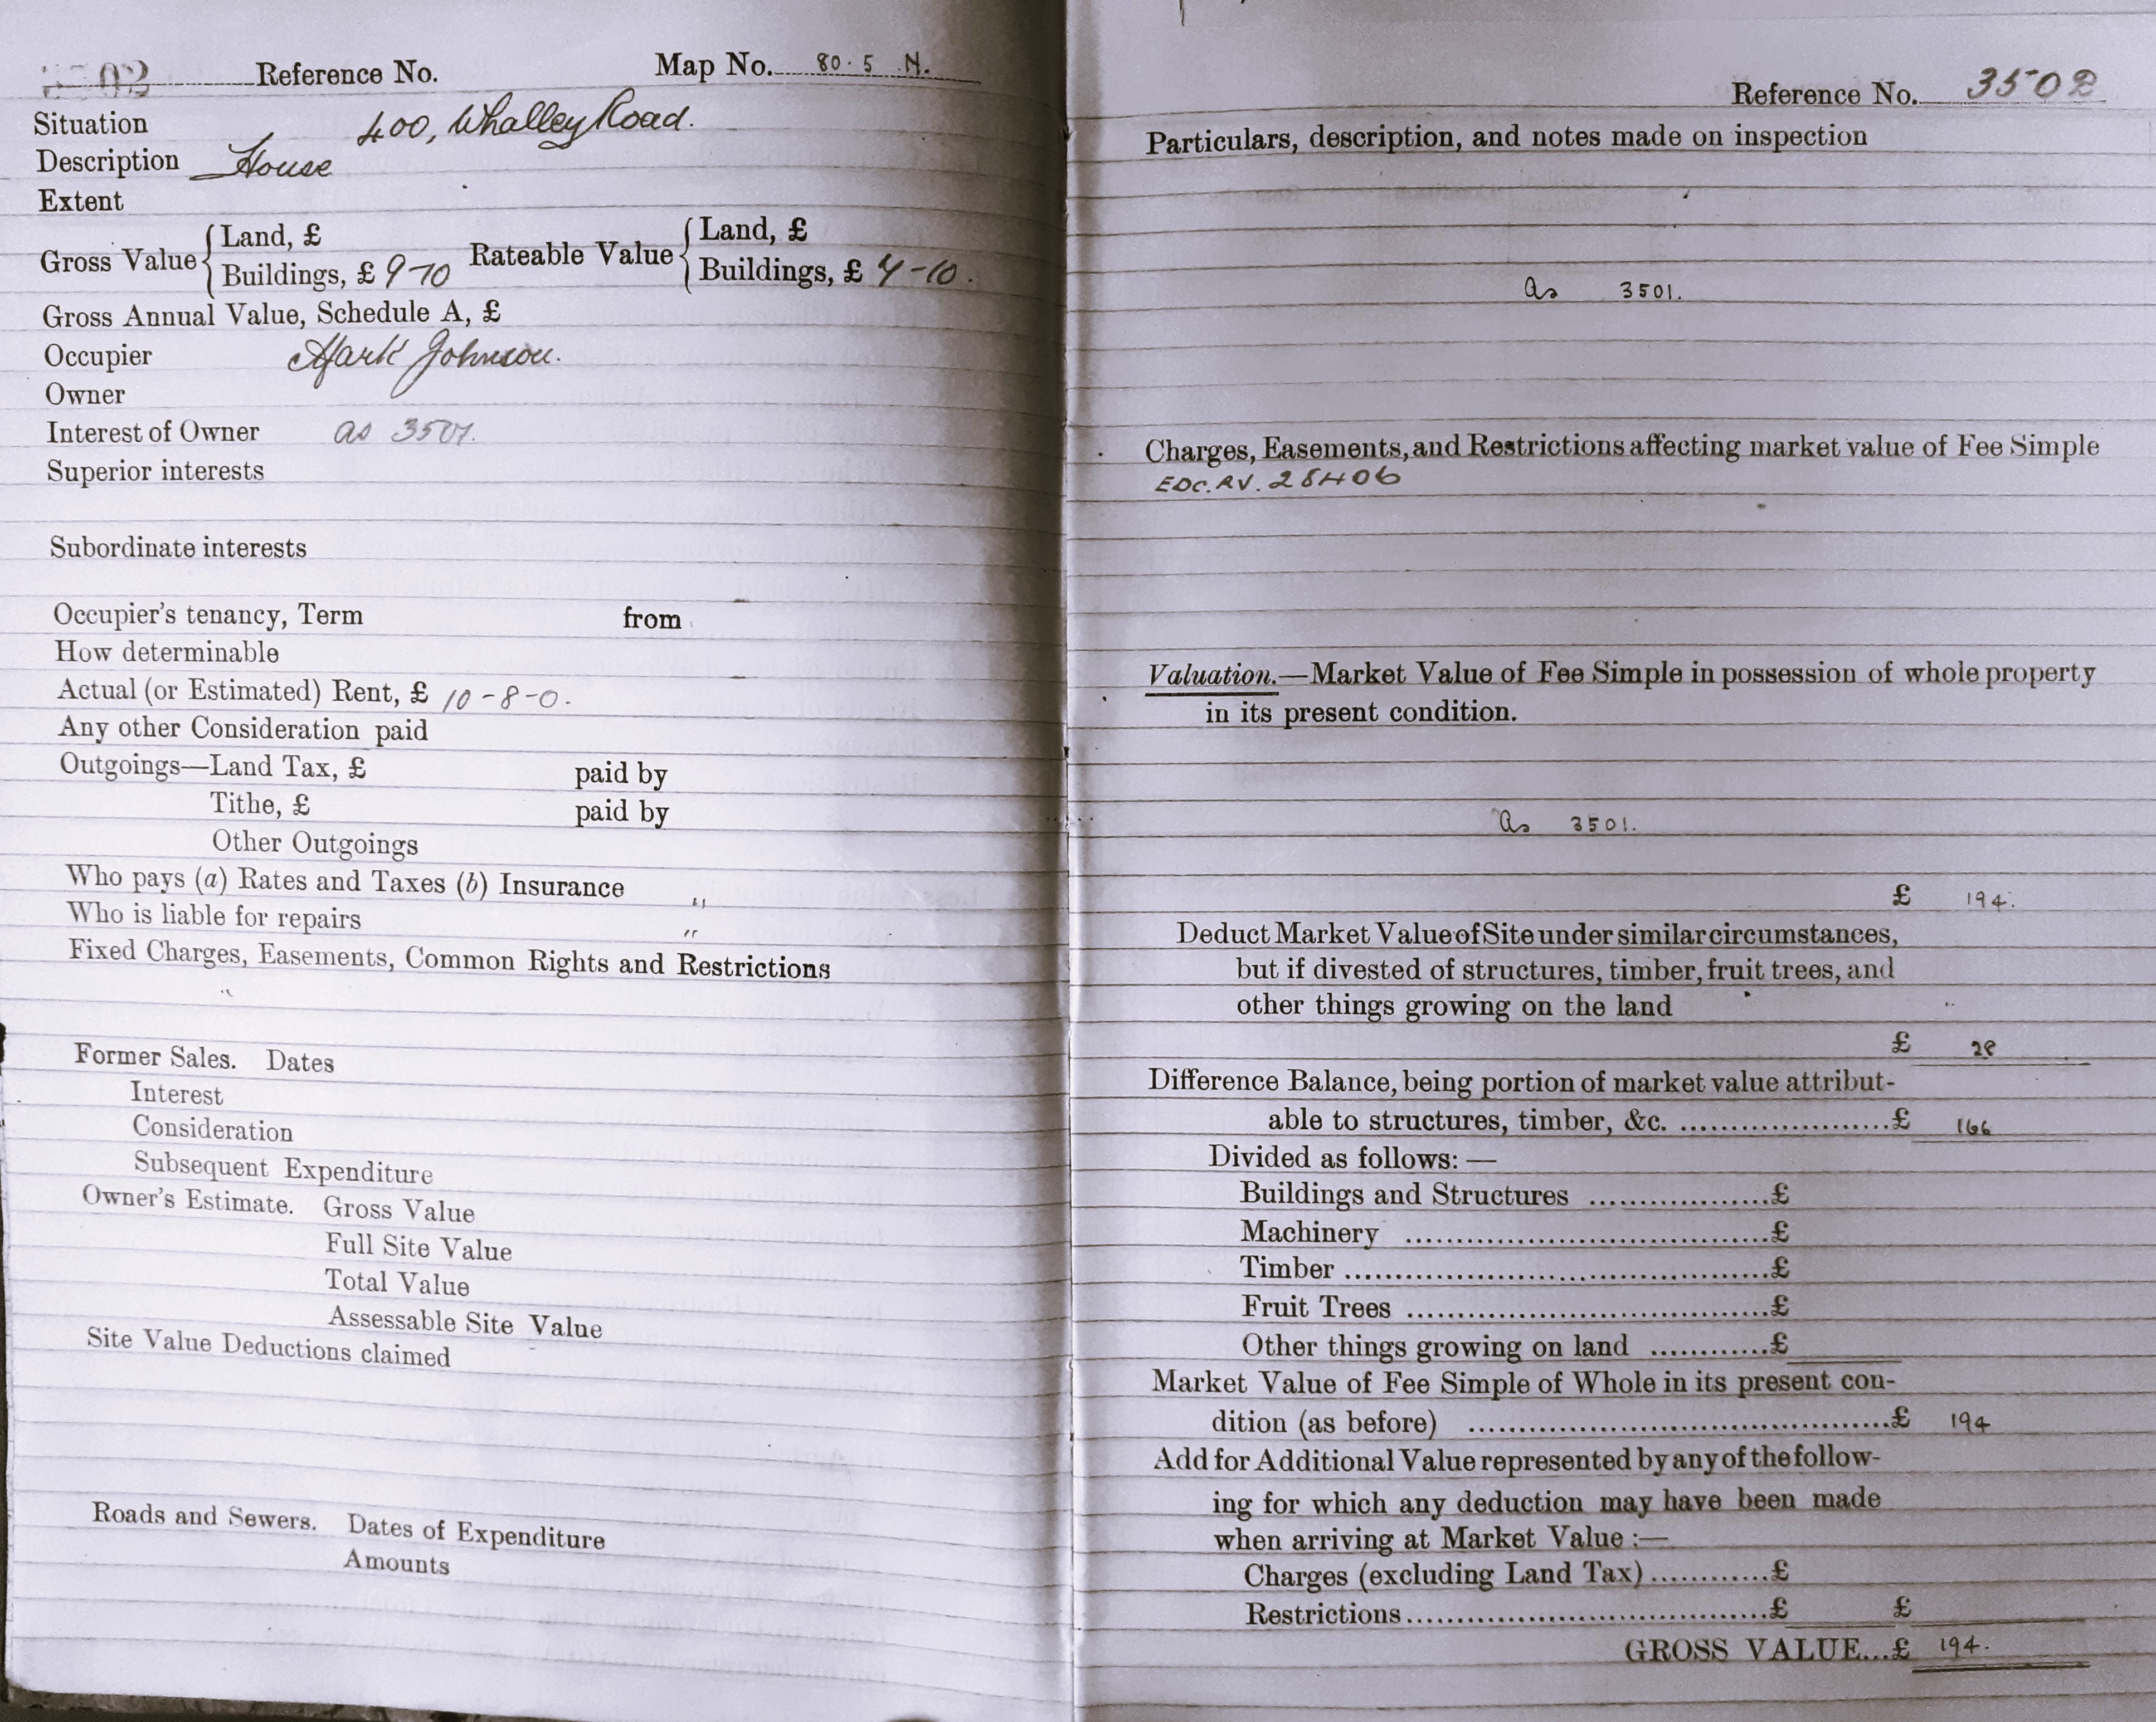 3502 Reference No. Map No. 80.5 N.
Situation 400, Whalley Road.
Description House
Extent
Gross Value { Land, £ Rateable Value { Land, £
Buildings, £ 9-10 Buildings, £ 4-10.
Gross Annual Value, Schedule A, £
Occupier Mark Johnson.
Owner
Interest of Owner as 3501.
Superior interests
Subordinate interests
Occupier's tenancy, Term from
How determinable
Actual (or Estimated) Rent, £ 10-8-0.
Any other Consideration paid
Outgoings—Land Tax, £ paid by
Tithe, £ paid by
Other Outgoings
Who pays (a) Rates and Taxes (b) Insurance "
Who is liable for repairs "
Fixed Charges, Easements, Common Rights and Restrictions
"
Former Sales. Dates
Interest
Consideration
Subsequent Expenditure
Owner's Estimate. Gross Value
Full Site Value
Total Value
Assessable Site Value
Site Value Deductions claimed
Roads and Sewers. Dates of Expenditure
Amounts
Reference No. 3502
Particulars, description, and notes made on inspection
As 3501.
Charges, Easements, and Restrictions affecting market value of Fee Simple
EDC. AV. 28406
Valuation.—Market Value of Fee Simple in possession of whole property
in its present condition.
As 3501.
£ 194.
Deduct Market Value of Site under similar circumstances,
but if divested of structures, timber, fruit trees, and
other things growing on the land
£ 28
Difference Balance, being portion of market value attribut-
able to structures, timber, &c. ....................£ 166
Divided as follows:—
Buildings and Structures ..................£
Machinery ....................................£
Timber ..........................................£
Fruit Trees ....................................£
Other things growing on land ............£
Market Value of Fee Simple of Whole in its present con-
dition (as before) ..........................................£ 194
Add for Additional Value represented by any of the follow-
ing for which any deduction may have been made
when arriving at Market Value :—
Charges (excluding Land Tax) ............£
Restrictions ....................................£ £
GROSS VALUE...£ 194.